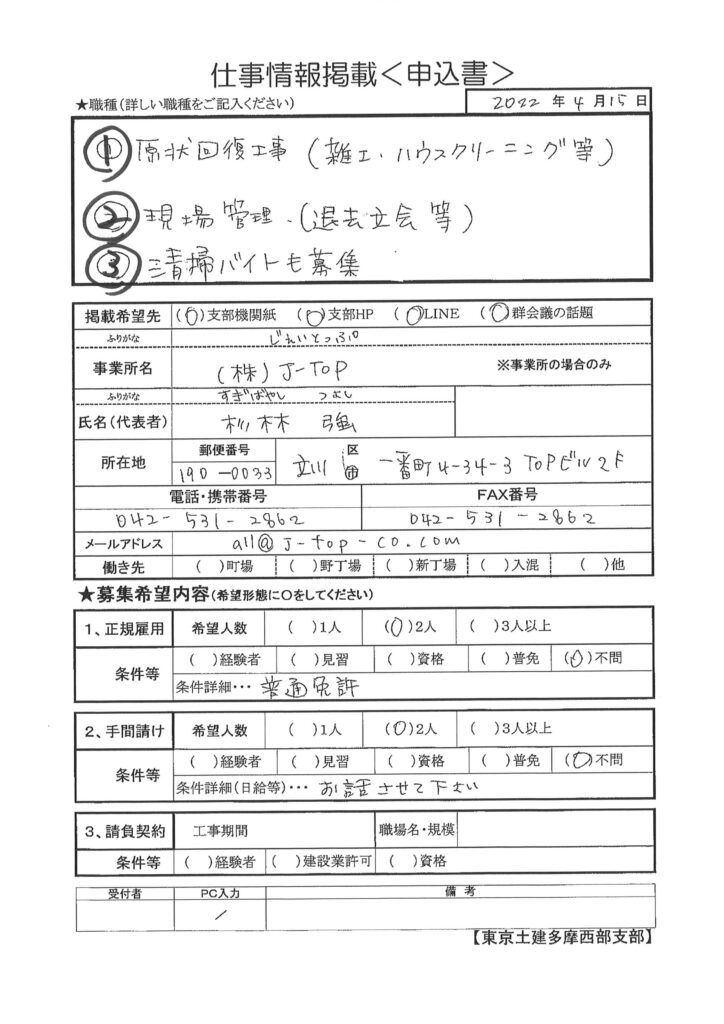 仕事情報掲載<申込書>
★職種(詳しい職種をご記入ください) 2022 年 4 月 15 日
① 原状回復工事 (雑工・ハウスクリーニング等)
② 現場管理・(退去立会等)
③ 清掃バイトも募集
掲載希望先 (○)支部機関紙 (○)支部HP (○)LINE (○)群会議の話題
ふりがな じぇいとっぷ
事業所名 (株) J-TOP ※事業所の場合のみ
ふりがな すぎばやし つよし
氏名(代表者) 杉林 強
所在地 郵便番号 190-0033 立川 区 市 一番町4-34-3 TOPビル2F
電話・携帯番号 FAX番号
042-531-2862 042-531-2862
メールアドレス all@j-top-co.com
働き先 ( )町場 ( )野丁場 ( )新丁場 ( )入混 ( )他
★募集希望内容(希望形態に○をしてください)
1、正規雇用 希望人数 ( )1人 (○)2人 ( )3人以上
条件等 ( )経験者 ( )見習 ( )資格 ( )普免 (○)不問
条件詳細・・・ 普通免許
2、手間請け 希望人数 ( )1人 (○)2人 ( )3人以上
条件等 ( )経験者 ( )見習 ( )資格 ( )普免 (○)不問
条件詳細(日給等)・・・ お話させて下さい
3、請負契約 工事期間 職場名・規模
条件等 ( )経験者 ( )建設業許可 ( )資格
受付者 PC入力 備考
/
【東京土建多摩西部支部】